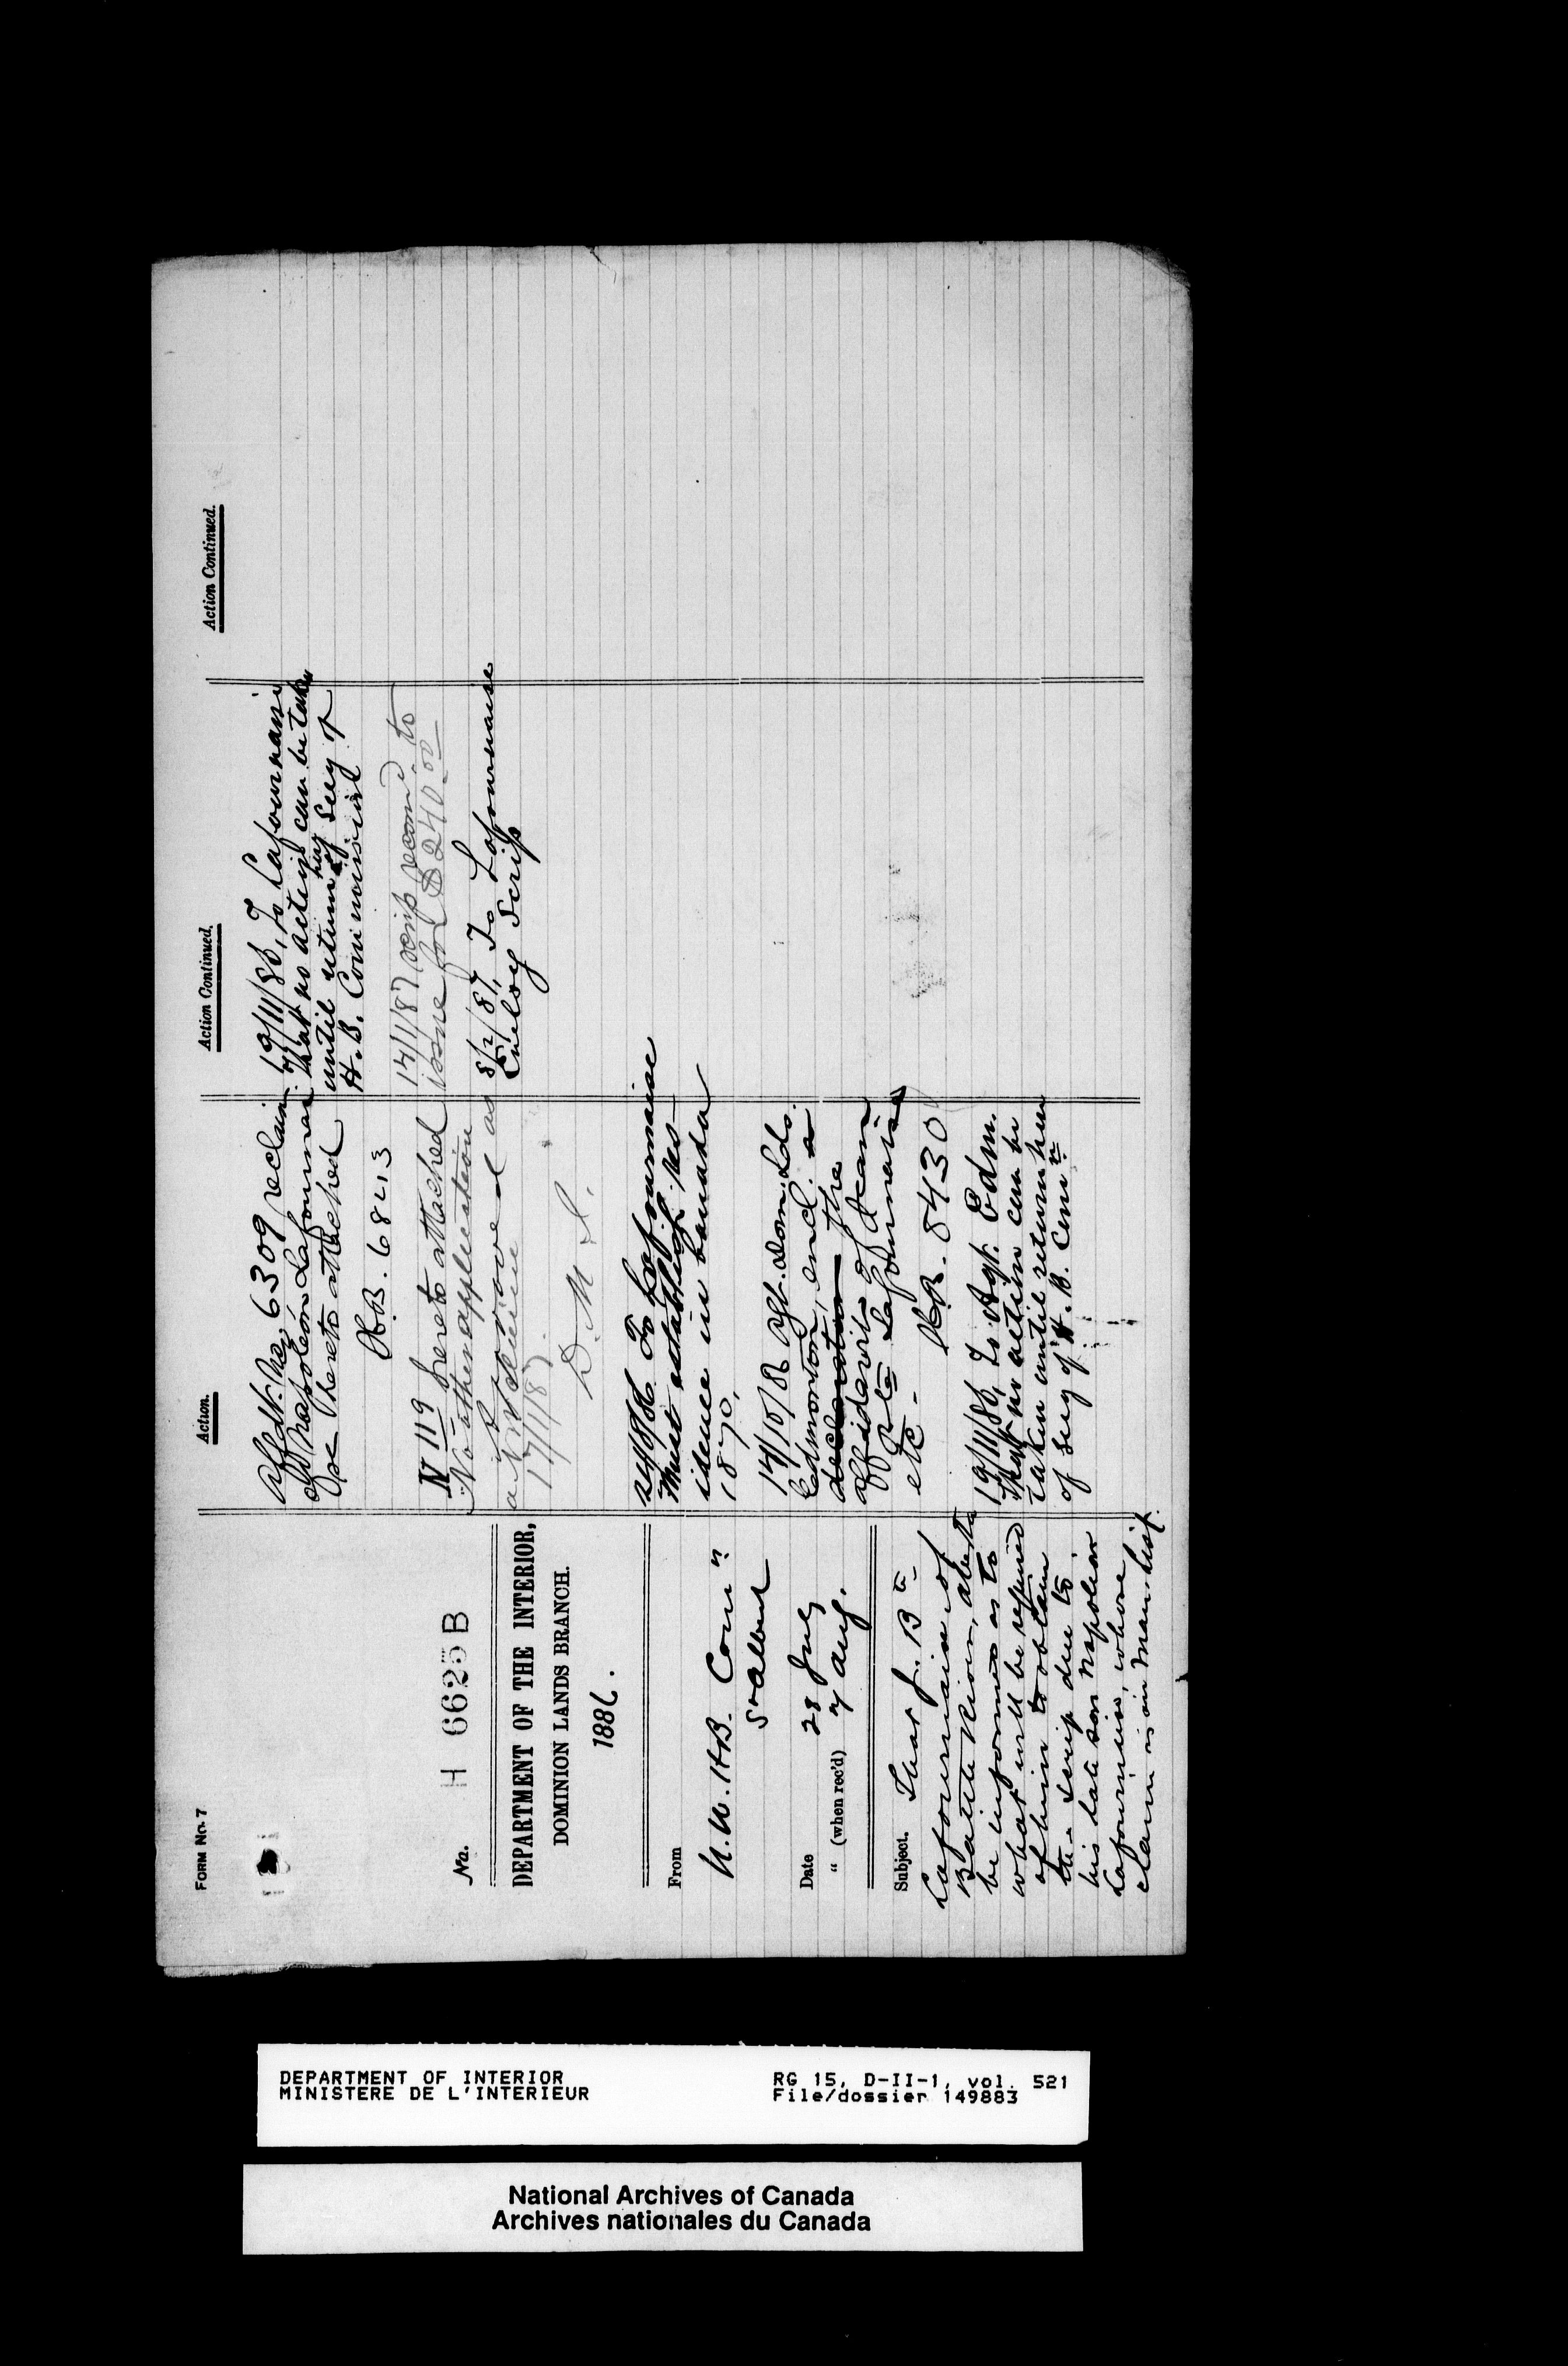 FORM No. 7
No. H 6625 B
DEPARTMENT OF THE INTERIOR,
DOMINION LANDS BRANCH.
1886.
From
N.W. H.B. Comn
St Albert
Date 28 July
" (when rec'd) 7 Aug.
Subject. That J. Bte
Lafournaise of
Battle River,
be informed as to
what will be required
of him to obtain
the scrip due to
his late son Napoleon
Lafournaise, whose
claim is in Man. list.
Action.
Affdt. No. 6309 reclaim
of Napoleon Lafournaise
hereto attached
H.B. 6843
N 119 hereto attached
No other application
approved as
17/1/87
D. M. I.
24/8/86 To Lafournaise
Must establish res-
idence in Canada
1870.
14/10/86 Agt. Dom. Lds.
Edmonton, encl. a
declaration the
affidavit of Jean
Bte Lafournaise
etc - H.B. 8430
19/11/86, To Agt. Edm.
that no action can be
taken until return here
of Secy of H.B. Comn
Action Continued.
19/11/86, To Lafournaise
that no action can be taken
until return here of Secy of
H.B. Commission
14/1/87 Scrip recomd. to
issue for $240.00
8/2/87, To Lafournaise
Encloy Scrip
Action Continued.
DEPARTMENT OF INTERIOR RG 15, D-II-1, vol. 521
MINISTERE DE L'INTERIEUR File/dossier 149883
National Archives of Canada
Archives nationales du Canada